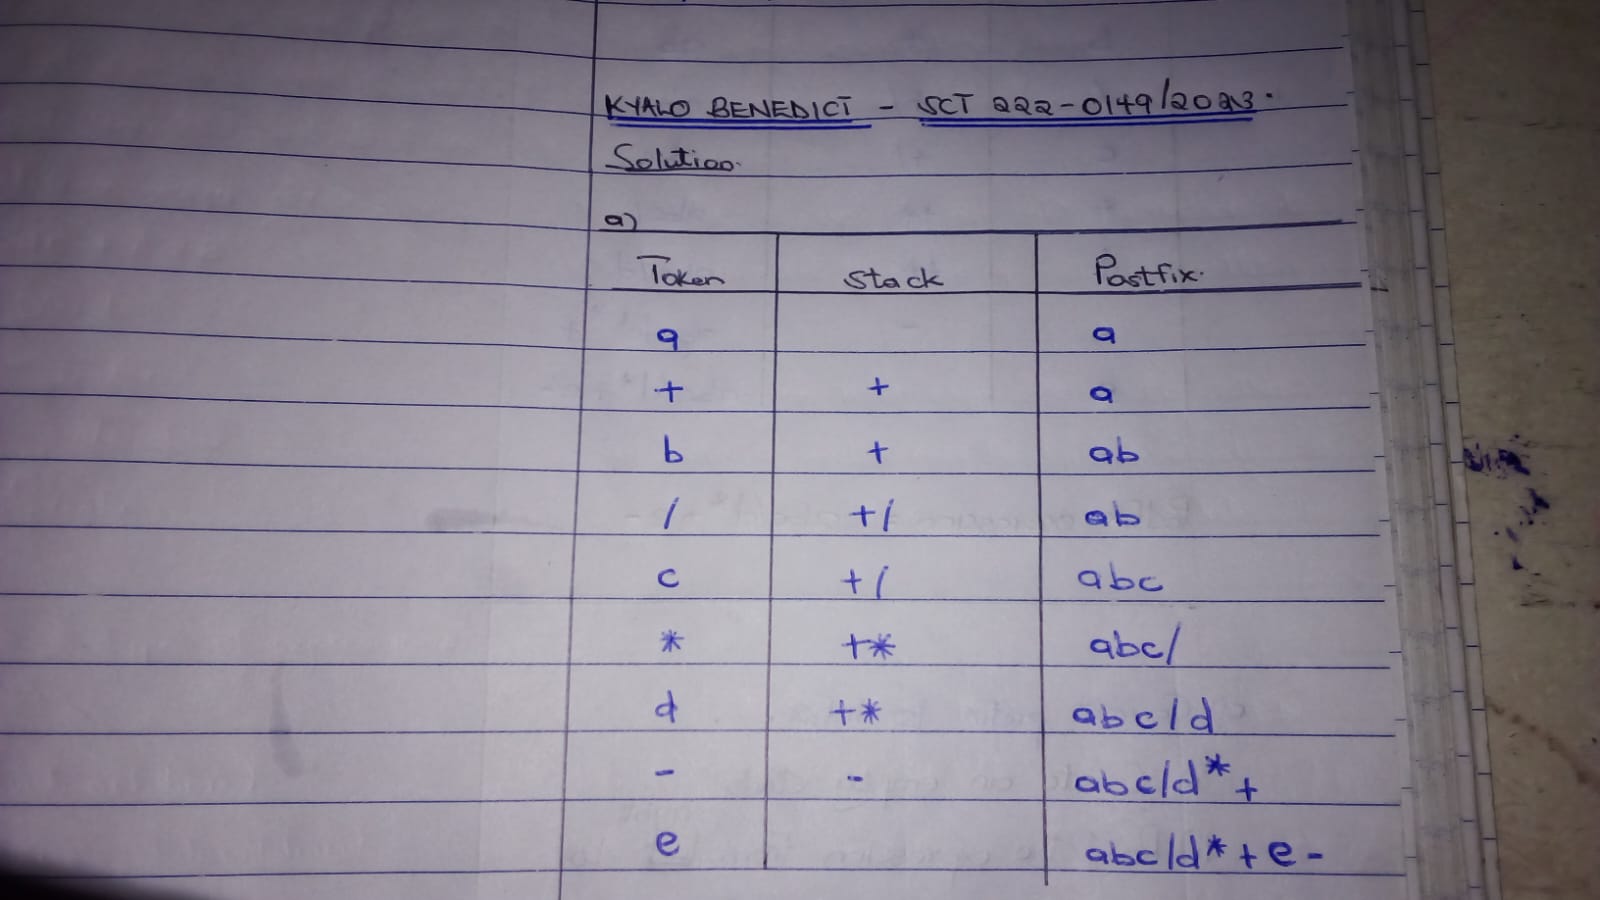 KYALO BENEDICT - SCT 222-0149/2023.
Solution.
a)
Token Stack Postfix.
a a
+ + a
b + ab
/ +/ ab
c +/ abc
* +* abc/
d +* abc/d
- - abc/d*+
e abc/d*+e-